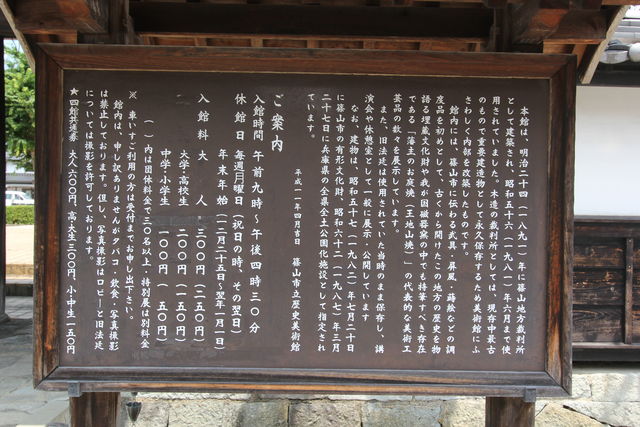 本館は、明治二十四(一八九一)年に篠山地方裁判所
として建築され、昭和五十六(一九八一)年六月まで使
用されていました。木造の裁判所としては、現存中最古
のもので重要建造物として永久保存するため美術館にふ
さわしく内部を改築したものです。
館内には、篠山市に伝わる武具・屏風、蒔絵などの調
度品を初めとして、古くから開けたこの地方の歴史を物
語る埋蔵文化財や我が国磁器窯の中でも特筆すべき存在
である「藩主のお庭焼(王地山焼)」の代表的な美術工
芸品の数々を展示しています。
また、旧法廷は使用されていた当時のまま保存し、講
演会や休憩室として一般に展示・公開しています
なお、建物は、昭和五十七(一九八二)年七月二十日
に篠山市の有形文化財、昭和六十二(一九八七)年三月
二十七日に兵庫県の全県全土公園化施設として指定され
ています。
平成一一年四月吉日 篠山市立歴史美術館
ご案内
入館時間 午前九時~午後四時三〇分
休館日 毎週月曜日(祝日の時、その翌日)
年末年始(一二月二十五日~翌年一月一日)
入館料 大人 三〇〇円(二五〇円)
大学・高校生 二〇〇円(一五〇円)
中学・小学生 一〇〇円(五〇円)
( )内は団体料金で三〇名以上・特別展は別料金
※ 車いすご利用の方は受付までお申し出下さい。
館内は、申し訳ありませんがタバコ・飲食、写真撮影
は禁止しております。但し、写真撮影はロビーと旧法廷
については撮影を許可しております。
★四館共通券 大人六〇〇円、高・大生三〇〇円、小・中生一五〇円